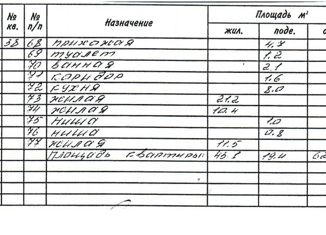 № кв. № п/п Назначение Площадь м²
жил. подс.
38 68 прихожая 4.7
69 туалет 1.2
70 ванная 2.1
коридор 1.6
72 кухня 8.0
73 жилая 21.2
74 жилая 10.4
75 ниша 1.0
76 ниша 0.8
77 жилая 11.5
Площадь квартиры: 43.1 19.4